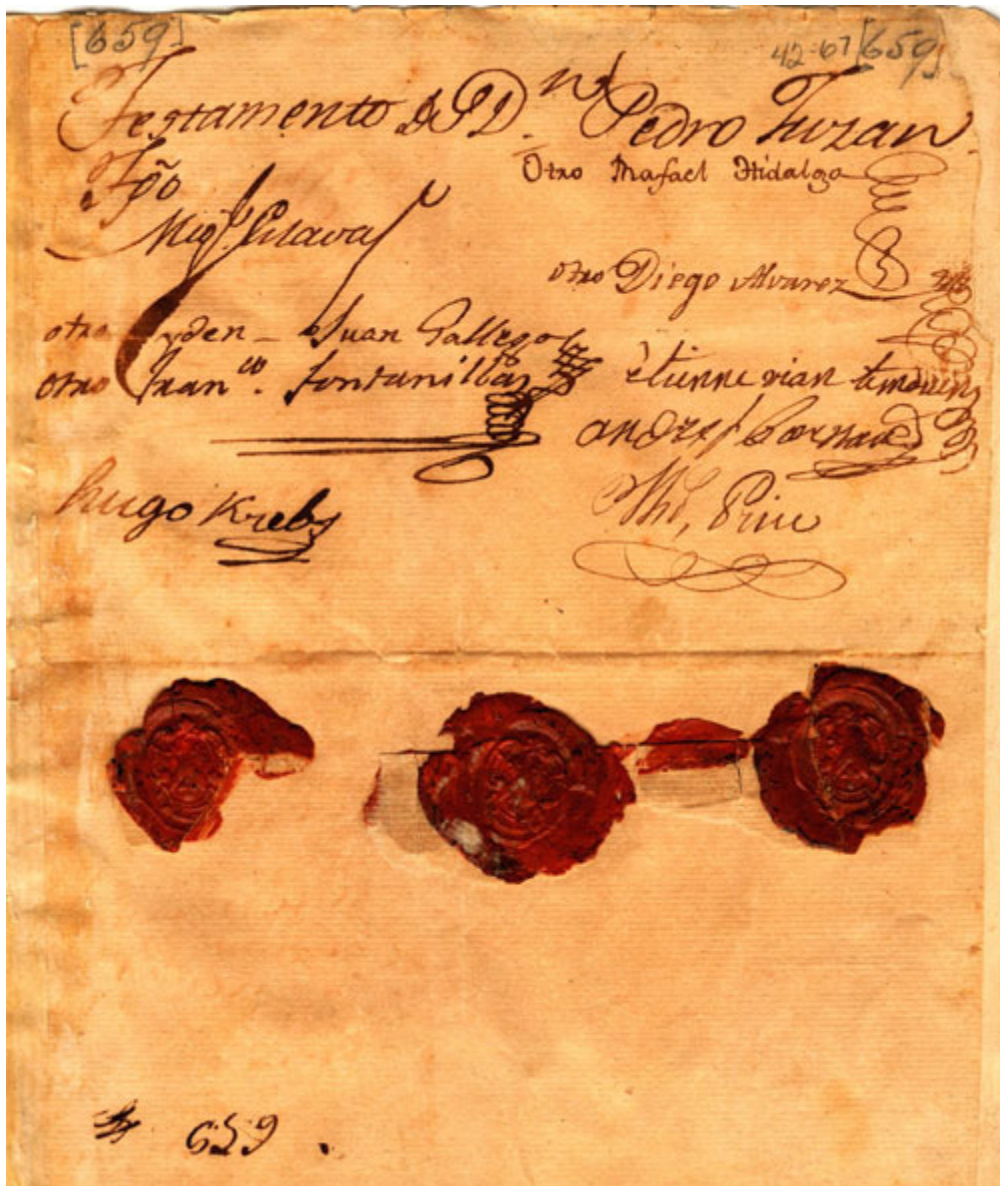 [659]
42-67 [659]
Testamento de Dn. Pedro Tuzan
Otro Rafael Hidalgo
Tgo
Migl.
otro Diego Alvarez
otro yden – Juan Gallego
otro Franco. fontanilla
étienne vian temoin
andres
hugo Krebs
# 659.